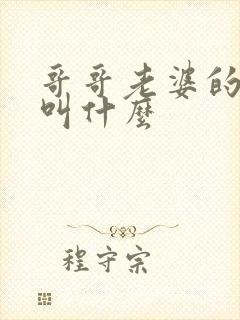 哥哥老婆的
叫什麼
程守宗